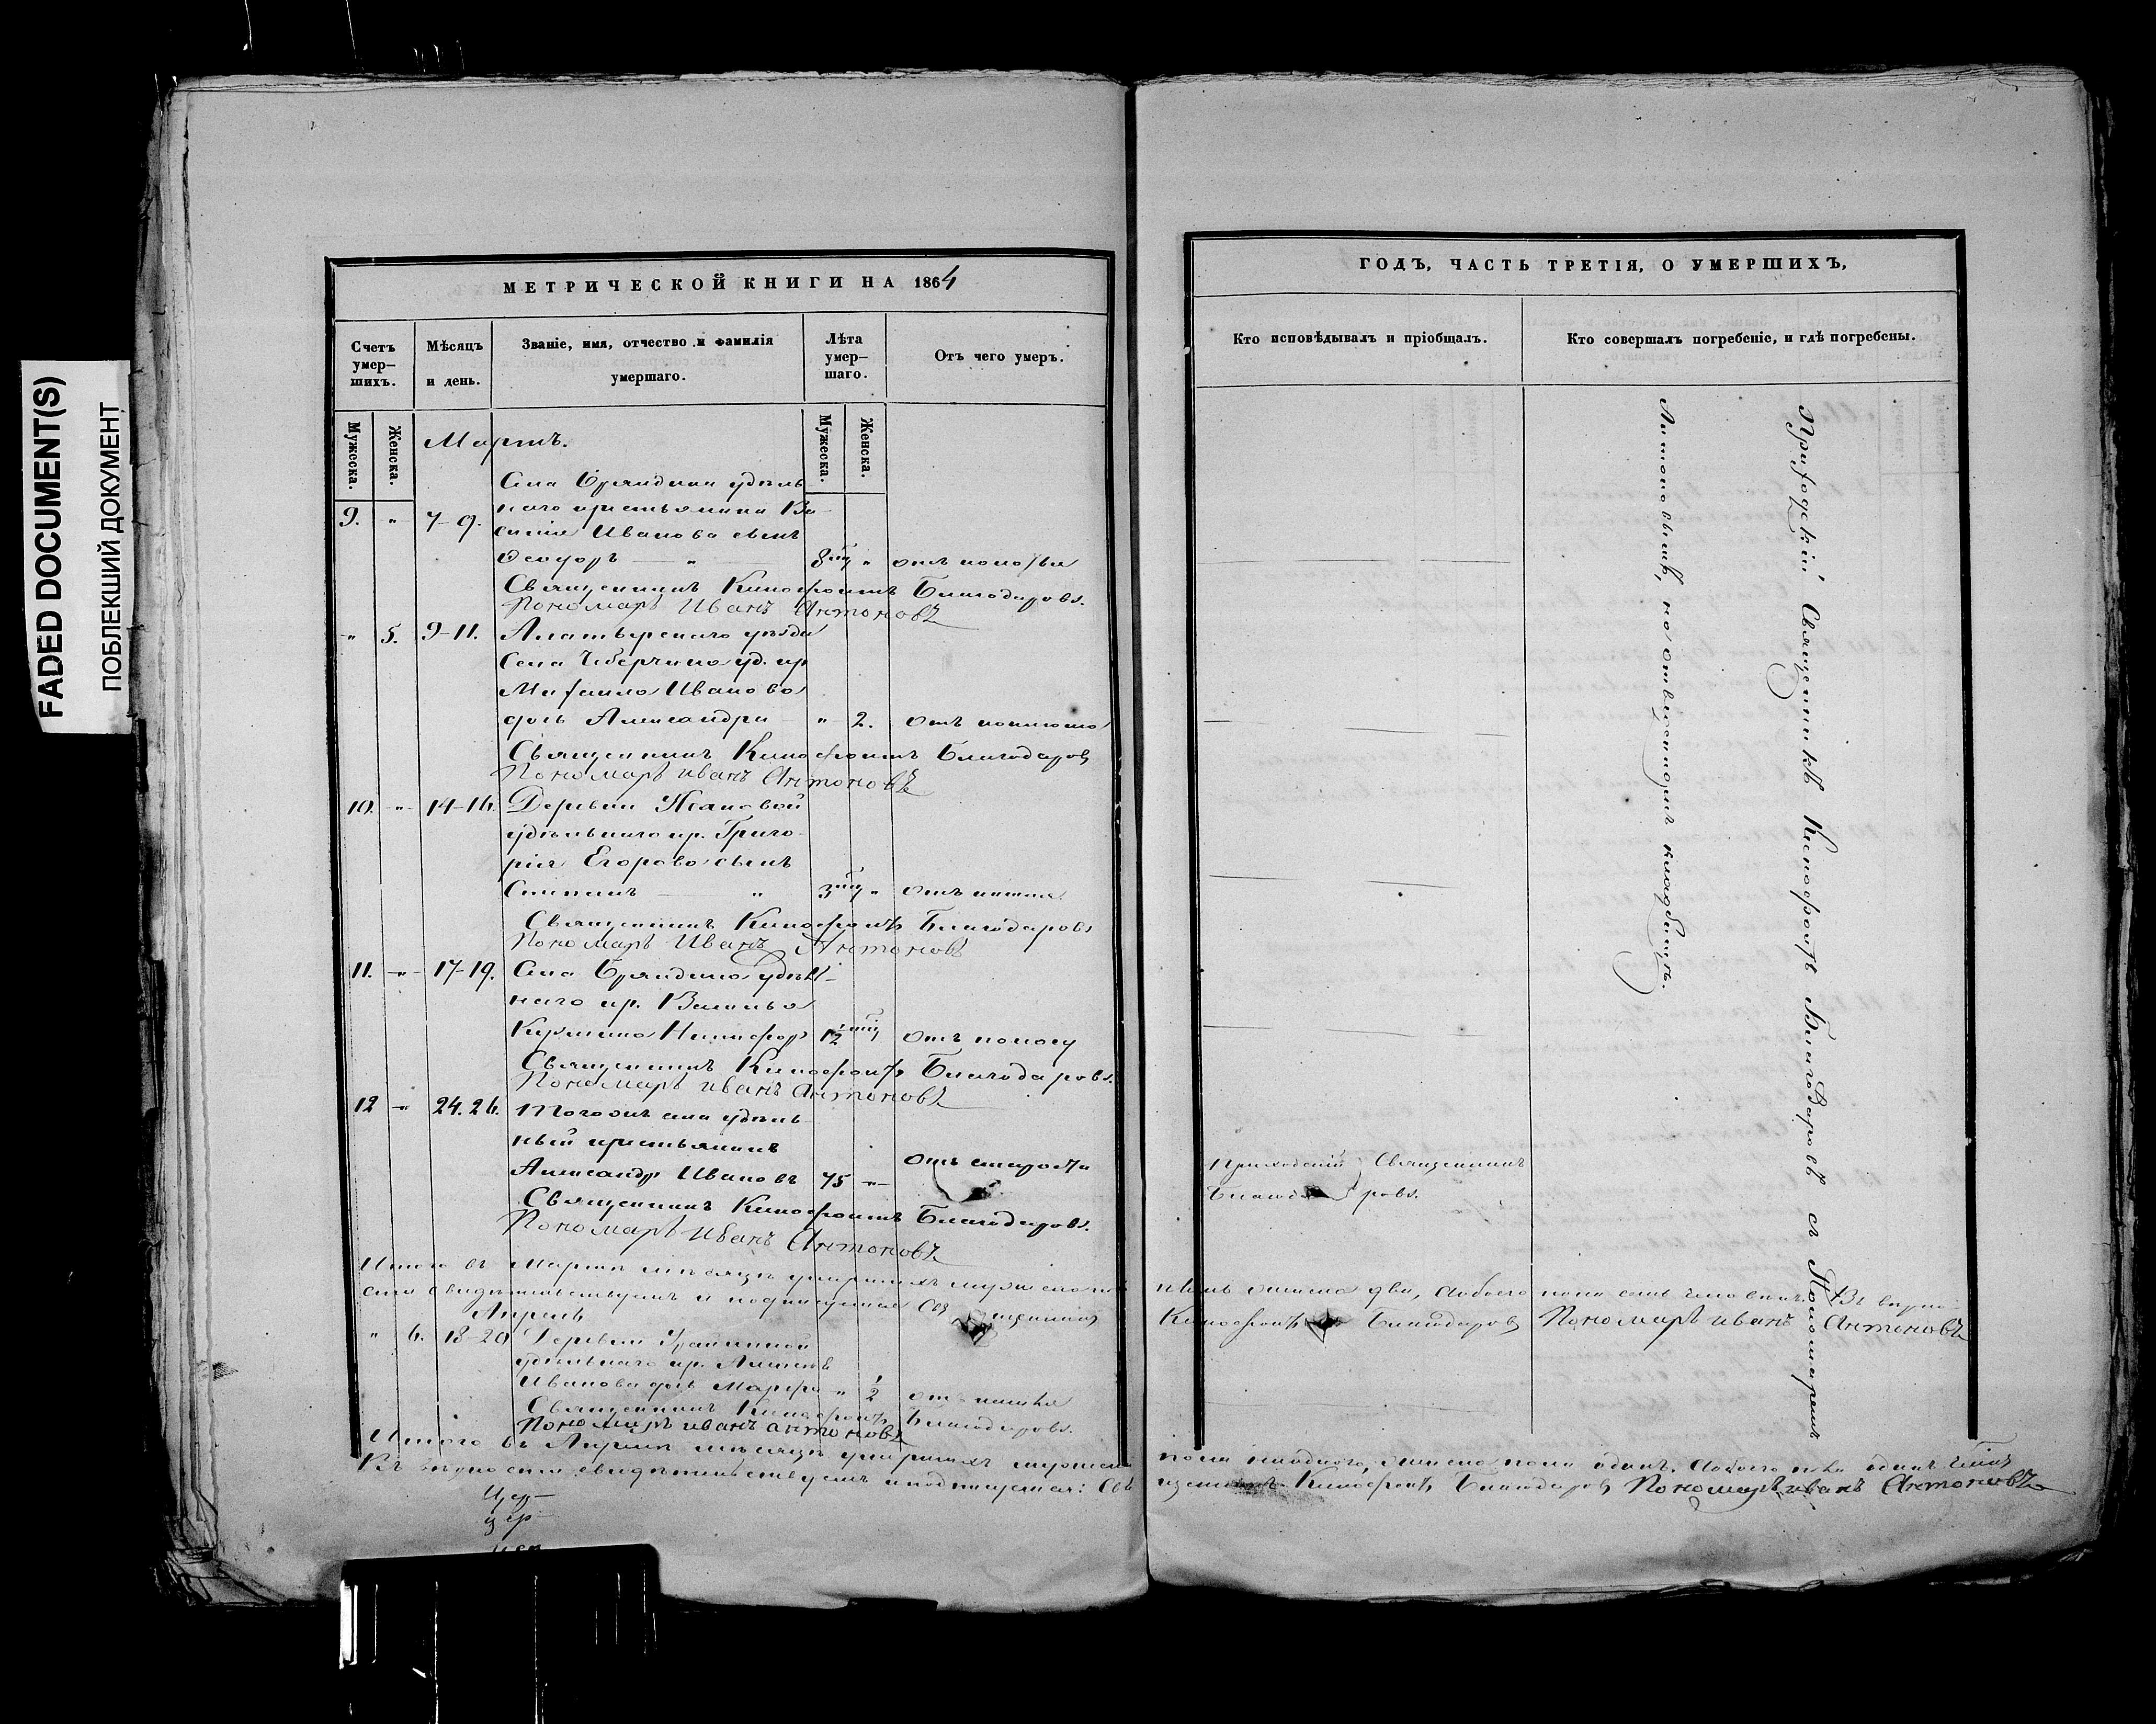 FADED DOCUMENT(S)
ПОБЛЕКШИЙ ДОКУМЕНТ
МЕТРИЧЕСКОЙ КНИГИ НА 1864
Счетъ умер-
шихъ.
Мѣсяцъ
и день.
Званіе, имя, отчество и фамилія
умершаго.
Лѣта
умер-
шаго.
Отъ чего умеръ.
Мужеска.
Женска.
Мужеска.
Женска.
Мартъ.
Села Бряндина удѣль
9. " 7-9. наго крестьянина Ва-
силія Иванова сынъ
Ѳеодоръ " 8 мц " отъ
Священникъ Ксенофонтъ Благодаровъ.
Пономарь Иванъ Антоновъ
" 5. 9-11. Алатырскаго уѣзда
Села Чеберчина уд. кр
Михаила Иванова
дочь Александра " 2. отъ
Священникъ Ксенофонтъ Благодаровъ
Пономарь иванъ Антоновъ
10. " 14-16. Деревни
удѣльнаго кр. Григо-
рія Егорова сынъ
Степанъ " 3 мц " отъ кашля
Священникъ Ксенофонтъ Благодаровъ
Пономарь Иванъ Антоновъ
11. " 17-19. Села Бряндина удѣль-
наго кр. Василья
Никифоръ 1/2 отъ поносу
Священникъ Ксенофонтъ Благодаровъ.
Пономарь иванъ Антоновъ
12 " 24. 26. Тогоже села удѣль-
ный крестьянинъ
Александръ Ивановъ 75 " отъ старости
Священникъ Ксенофонтъ Благодаровъ.
Пономарь Иванъ Антоновъ
Итого въ Мартѣ мѣсяцѣ умершихъ мужеска по
сти свидѣтельствуемъ и подписуемся Священникъ
Апрель
" 6. 18-20 Деревни
удѣльнаго кр. Алексѣя
Иванова дочь Марфа " 1/2 отъ кашля
Священникъ Ксенофонтъ Благодаровъ.
Пономарь иванъ антоновъ
Итого въ Апрелѣ мѣсяцѣ умершихъ мужеска
Въ вѣрности свидѣтельствуемъ и подписуемся: Свя
ГОДЪ, ЧАСТЬ ТРЕТІЯ, О УМЕРШИХЪ,
Кто исповѣдывалъ и пріобщалъ.
Кто совершалъ погребеніе, и гдѣ погребены.
Приходскій Священникъ Ксенофонтъ Благодаровъ съ Пономаремъ
Антоновымъ, на отведенномъ кладбищѣ.
Приходскій Священникъ
Благодаровъ.
женска два, а обоего пола семь человѣкъ. Въ вѣрно-
Ксенофонтъ Благодаровъ Пономарь иванъ Антоновъ
пола ниодного, женска пола одинъ. Аобоего пола одинъ
щенникъ Ксенофонтъ Благодаровъ Пономарь иванъ Антоновъ